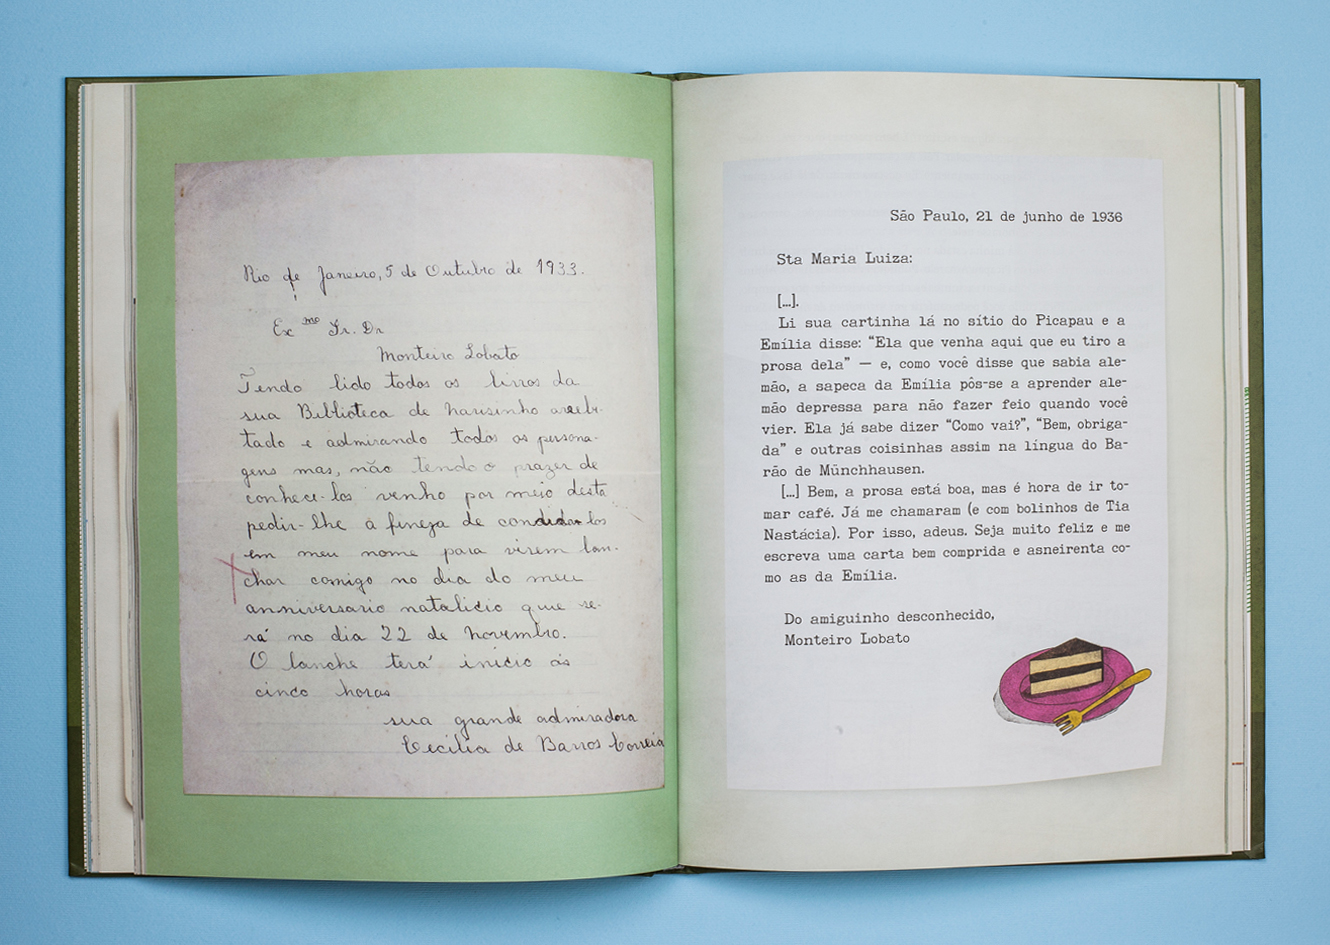 Rio de Janeiro, 5 de Outubro de 1933.
Ex mo Sr. Dr
Monteiro Lobato
Tendo lido todos os livros da
sua Biblioteca de Narisinho
tado e admirando todos os persona-
gens mas, não tendo o prazer de
conhece-los venho por meio desta
pedir-lhe a fineza de los
em meu nome para virem lan-
char comigo no dia do meu
anniversario natalicio que se-
rá no dia 22 de Novembro.
O lanche terá inicio ás
cinco horas
sua grande admiradora
Cecília de Barros Correia
São Paulo, 21 de junho de 1936
Sta Maria Luiza:
[...].
Li sua cartinha lá no sítio do Picapau e a
Emília disse: “Ela que venha aqui que eu tiro a
prosa dela” — e, como você disse que sabia ale-
mão, a sapeca da Emília pôs-se a aprender ale-
mão depressa para não fazer feio quando você
vier. Ela já sabe dizer “Como vai?”, “Bem, obriga-
da” e outras coisinhas assim na língua do Ba-
rão de Münchhausen.
[...] Bem, a prosa está boa, mas é hora de ir to-
mar café. Já me chamaram (e com bolinhos de Tia
Nastácia). Por isso, adeus. Seja muito feliz e me
escreva uma carta bem comprida e asneirenta co-
mo as da Emília.
Do amiguinho desconhecido,
Monteiro Lobato